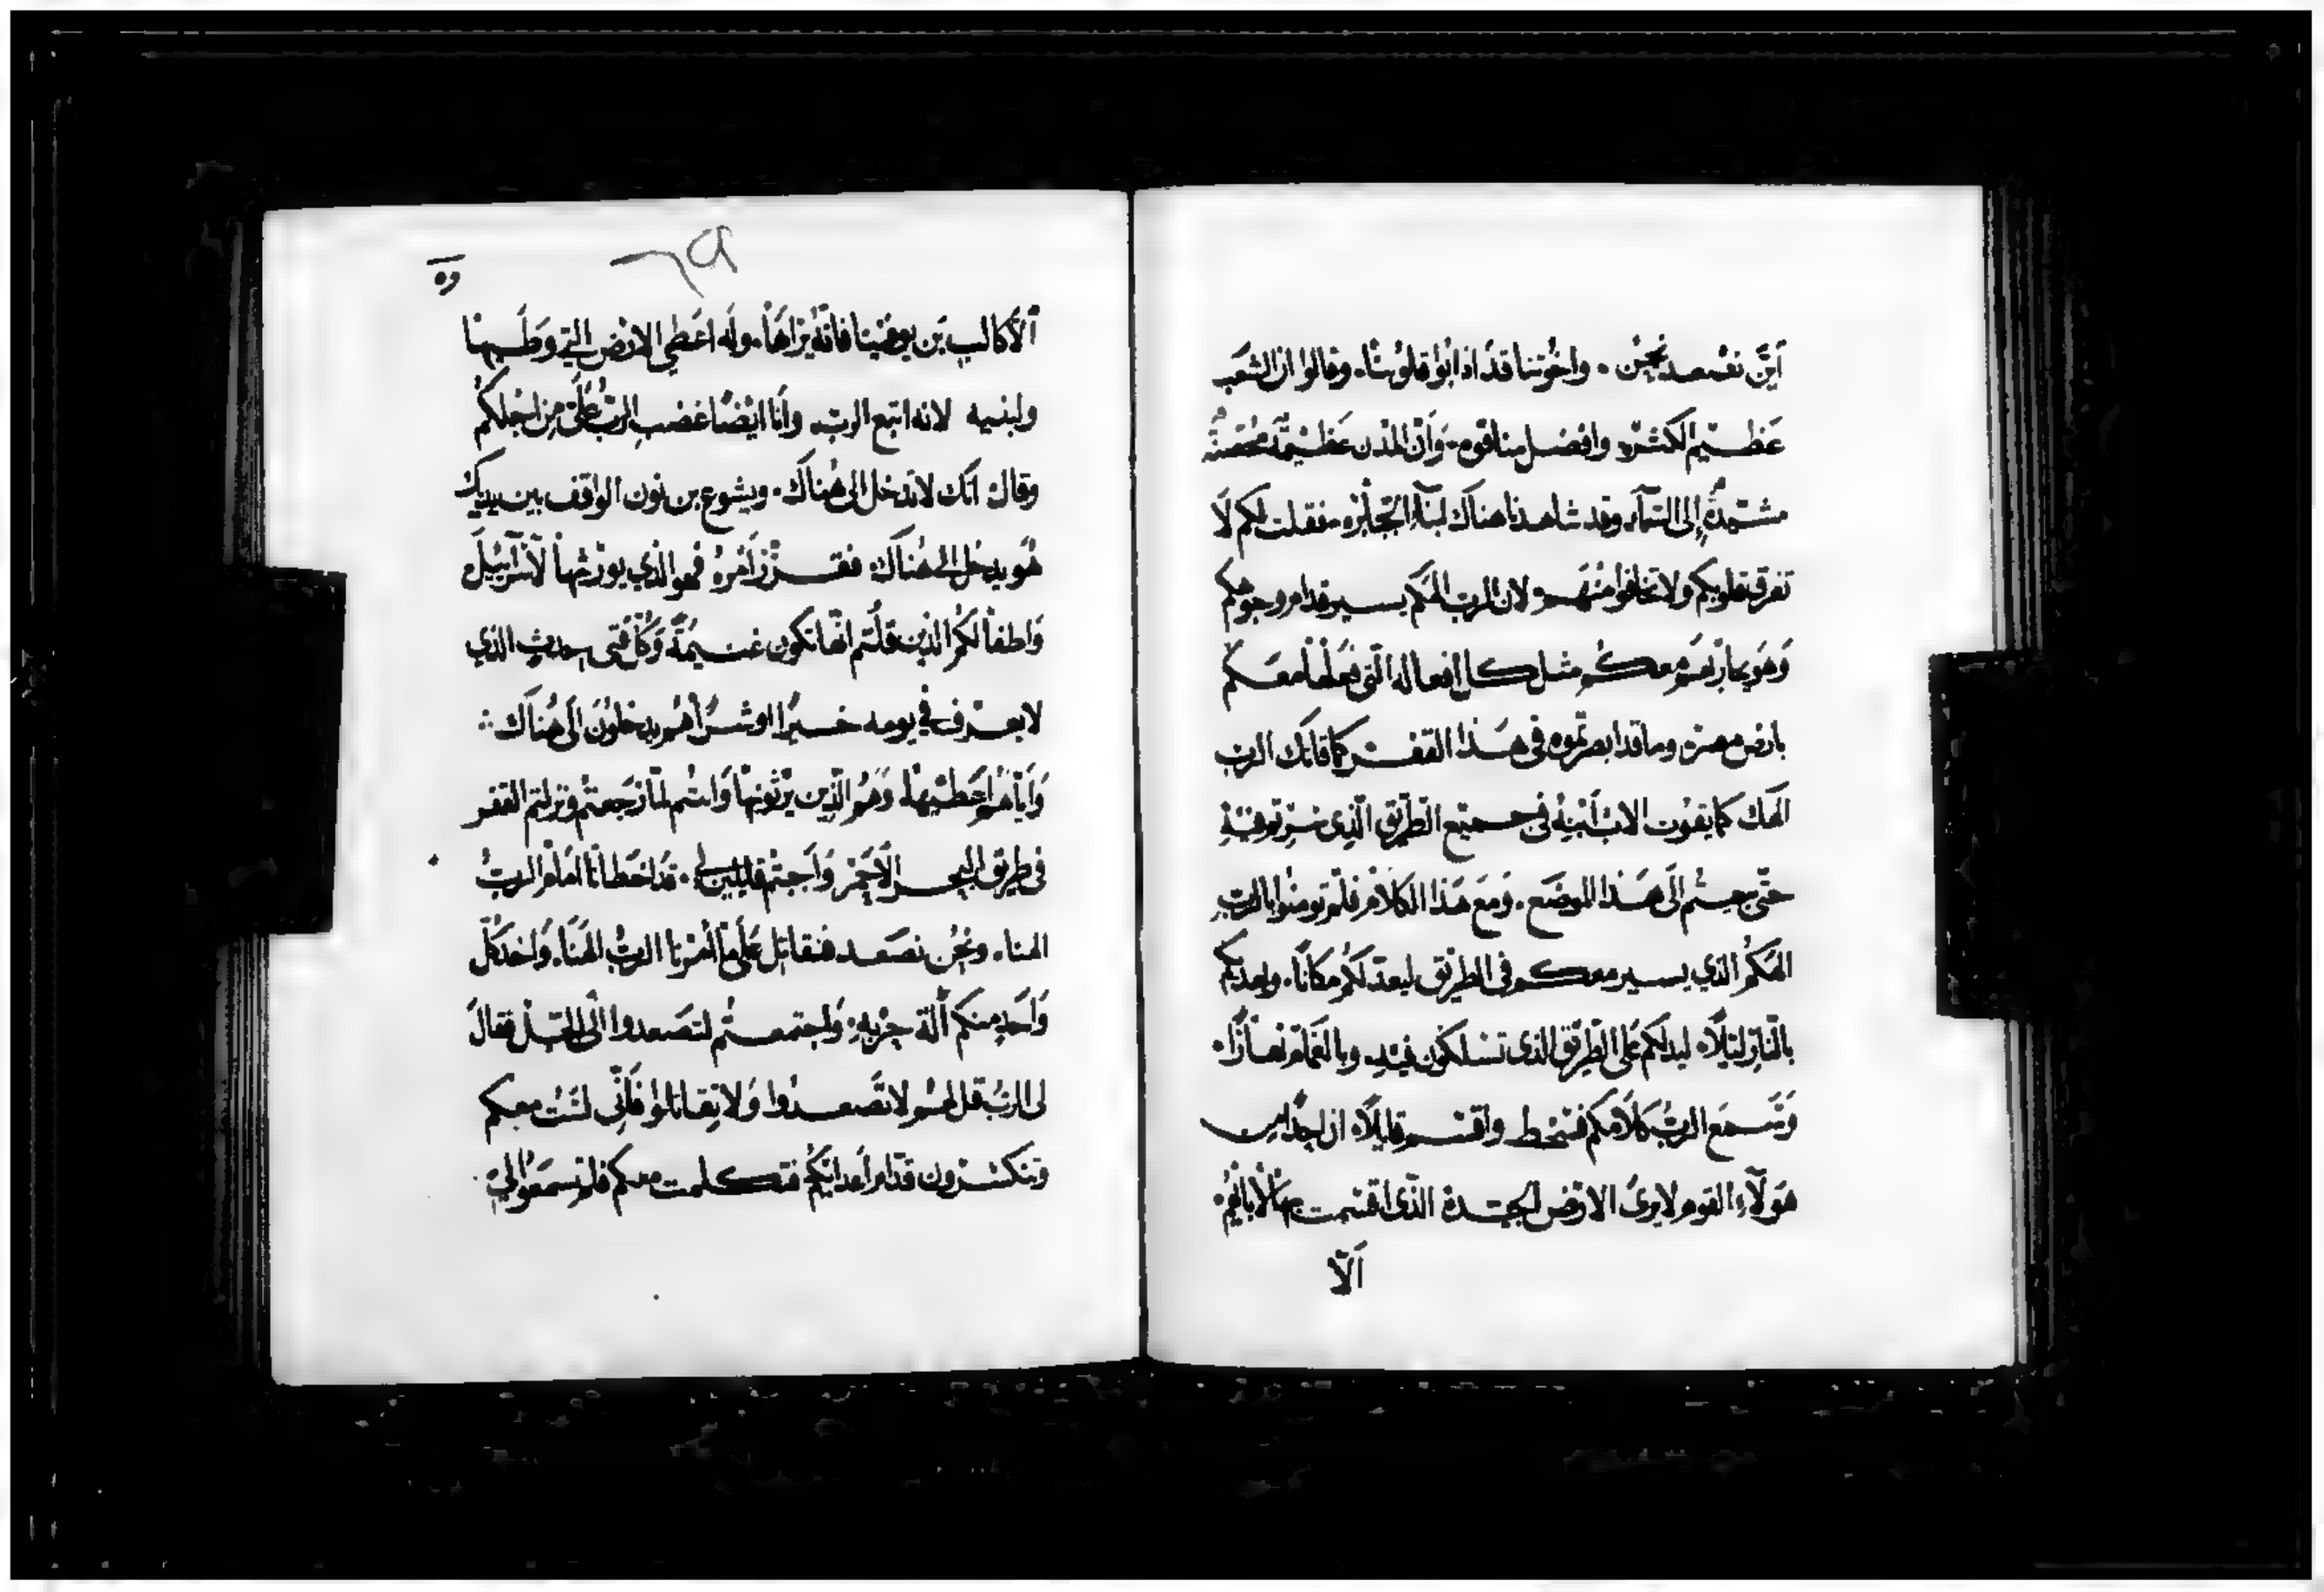 أين نصعد نحن. واخوتنا قد اذابوا قلوبنا. وقالوا ان الشعب
عظيم الكثرة وافضل منا قوه. وان المدن عظيمة محصنة
مشتمدة إلى السماء. وقد شاهدنا هناك ابناء الجبابره. فقلت لكم لا
تفرق قلوبكم ولا تخافوا منهم. لان الرب الهكم يسير قدام وجوهكم
وهو يحاربهم معكم مثل كل افعاله التي فعلها معكم
بارض مصر. وما قد ابصرتموه في هذا القفر كما قاتك الرب
الهك كما يقوت الاب ابنه في جميع الطريق الذي سرتم فيه
حتى جيتم الى هذا الموضع. ومع هذا الكلام فلم تومنوا بالرب
الهكم الذي يسير معكم في الطريق ليعد لكم مكانا. ويهديكم
بالنار ليلا. ليدلكم على الطريق الذي تسلكون فيه. وبالغمام نهارا.
وتسمع الرب كلامكم فسخط واقسم قايلا. ان احدا من
هولاء القوم لا يرى الارض الجيدة الذي اقسمت بها لابايهم.
الا
٦٩
الا كالب بن يوفنيا فانه يراها. وله اعطي الارض التي وطيها
ولبنيه لانه اتبع الرب. وانا ايضا غضب الرب علي من اجلكم
وقال انك لا تدخل الى هناك. ويشوع بن نون الواقف بين يديك
هو يدخل الى هناك فقرر امره فهو الذي يورثها لاسراييل
واطفالكم الذين قلتم انها تكون غنيمة وكل فتى حدث الذي
لا يعرف في يومه خيرا او شرا هم يدخلون الى هناك
واياهم اعطيها. وهم الذين يرثونها وانتم لما رجعتم ونزلتم القفر
في طريق البحر الاحمر واجبتم قايلين لي. قد اخطانا امام الرب
الهنا. ونحن نصعد فنقاتل على ما امرنا الرب الهنا. واخذ كل
واحد منكم آلة حربه. واجتمعتم لتصعدوا الى الجبل فقال
لي الرب قل لهم لا تصعدوا ولا تقاتلوا فاني لست معكم
وتنكسرون قدام اعدايكم فتكلمت معكم فلم تسمعوا لي.